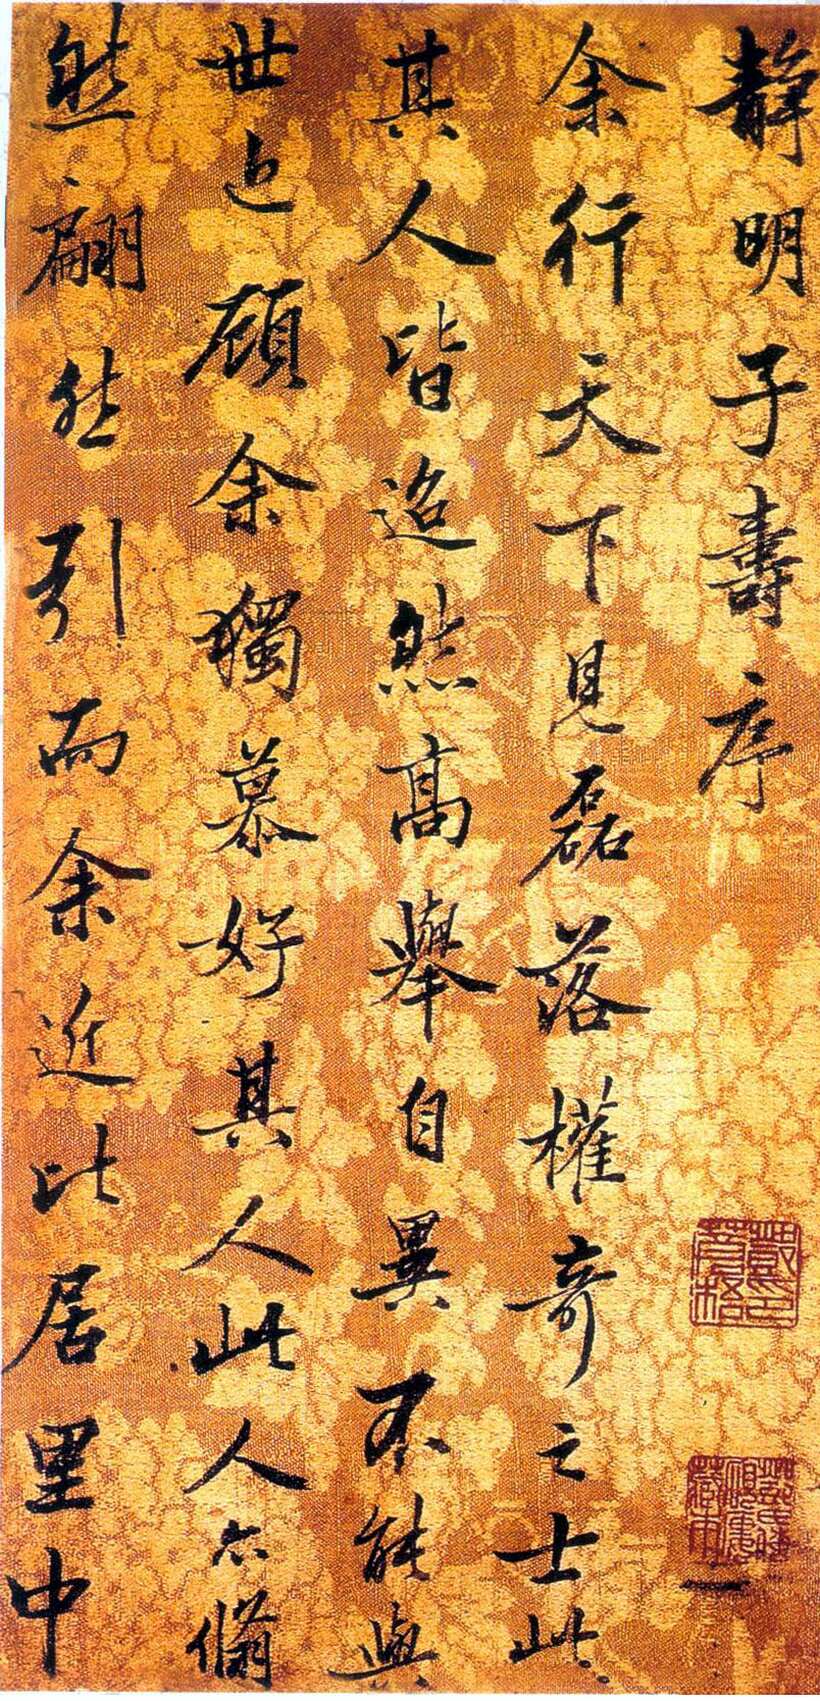 靜明子壽序
余行天下見磊落權奇之士此
其人皆迢然高舉自異不能與
世顧余獨慕好其人此人亦翛
然翩然引而余近比居里中